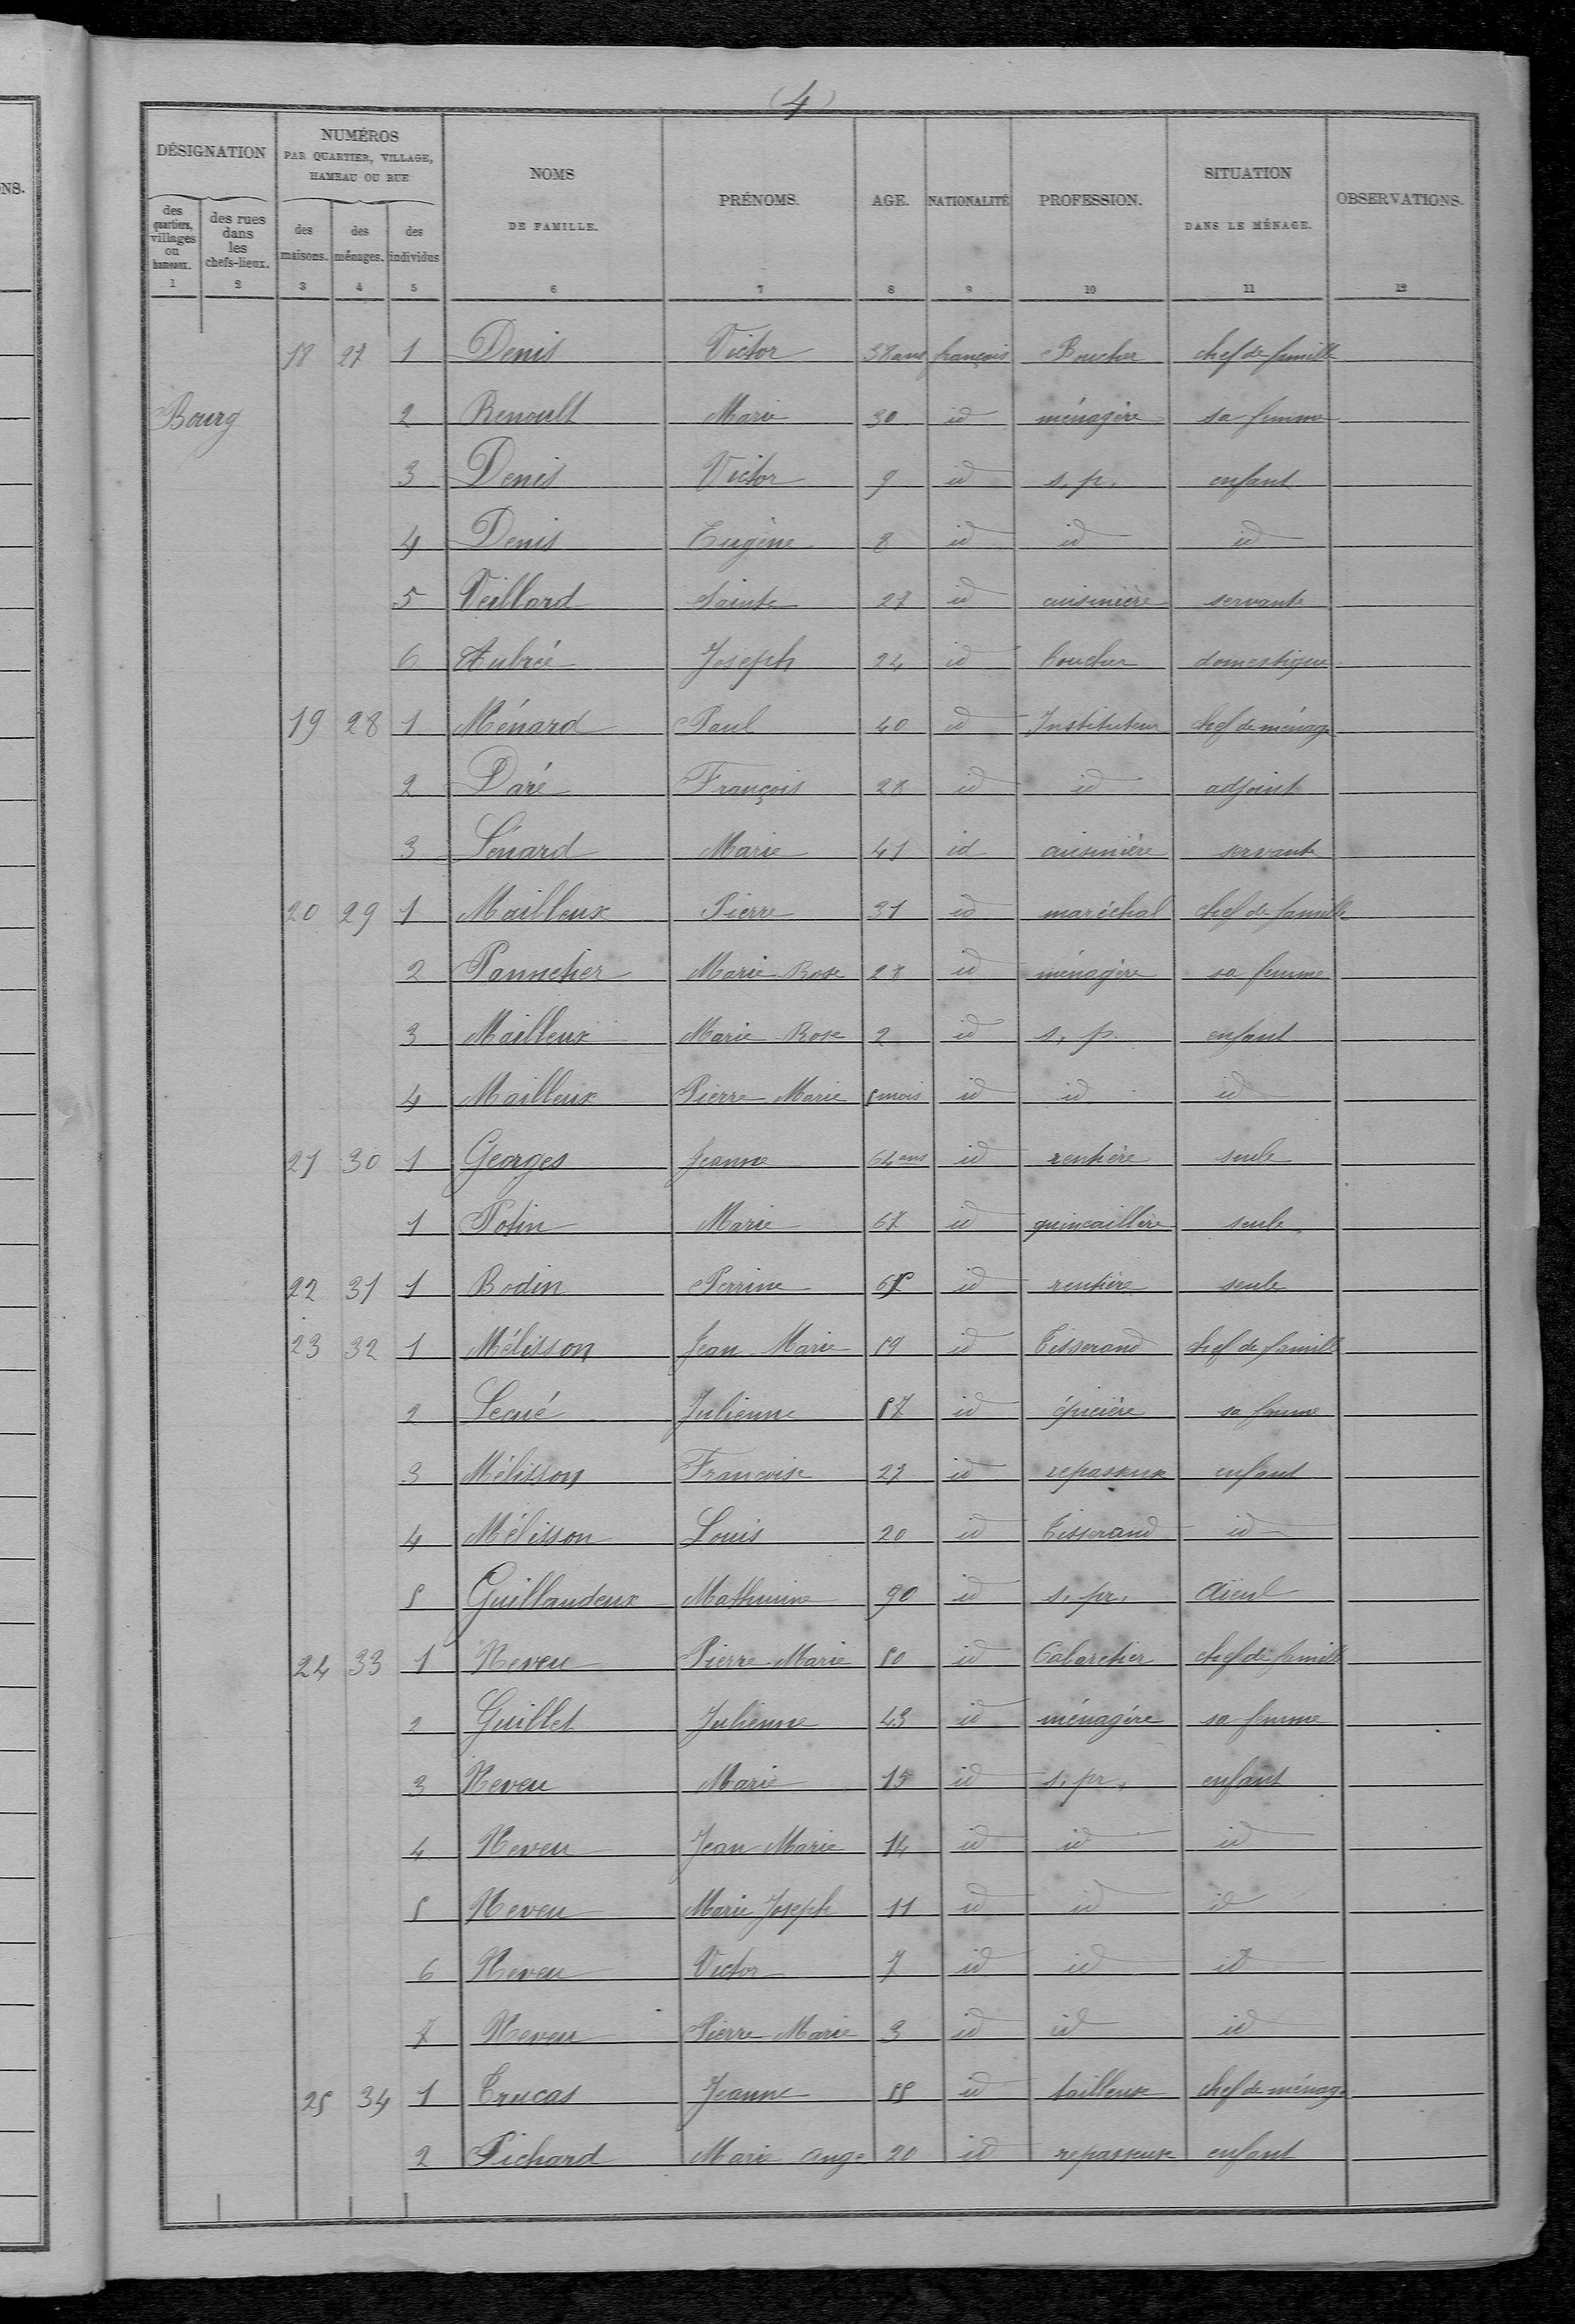 (4)
DÉSIGNATION
NUMÉROS
PAR QUARTIER, VILLAGE,
HAMEAU OU RUE
NOMS
DE FAMILLE.
PRÉNOMS.
AGE.
NATIONALITÉ
PROFESSION.
SITUATION
DANS LE MÉNAGE.
OBSERVATIONS.
NS.
des quartiers, villages ou hameaux.
des rues dans les chefs-lieux.
des maisons.
des ménages.
des individus
1 2 3 4 5 6 7 8 9 10 11 12
18 27 1 Denis Victor 38 ans français Boucher chef de famille
Bourg 2 Renoult Marie 30 id ménagère sa femme
3 Denis Victor 9 id s. pr. enfant
4 Denis Eugène 8 id id id
5 Veillard Sainte 27 id cuisinière servante
6 Aubrée Joseph 24 id boucher domestique
19 28 1 Ménard Paul 40 id Instituteur chef de ménage
2 Daré François 28 id id adjoint
3 Lénard Marie 41 id cuisinière servante
20 29 1 Mailleux Pierre 31 id maréchal chef de famille
2 Pannetier Marie Rose 28 id ménagère sa femme
3 Mailleux Marie Rose 2 id s. p. enfant
4 Mailleux Pierre Marie 5 mois id id id
21 30 1 Georges Jeanne 64 ans id rentière seule
1 Potin Marie 67 id quincaillère seule
22 31 1 Bodin Perrine id rentière seule
23 32 1 Mélisson Jean Marie 59 id Tisserand chef de famille
2 Lecué Julienne 57 id épicière sa femme
3 Mélisson Francoise 27 id repasseuse enfant
4 Mélisson Louis 20 id Tisserand id
5 Guillaudeux Mathurine 90 id s. pr. Aieul
24 33 1 Neveu Pierre Marie 50 id Cabaretier chef de famille
2 Guillet Julienne 43 id ménagère sa femme
3 Neveu Marie 15 id s. pr. enfant
4 Neveu Jean Marie 14 id id id
5 Neveu Marie Joseph 11 id id id
6 Neveu Victor 7 id id id
7 Neveu Pierre Marie 3 id id id
25 34 1 Trucas Jeanne 55 id tailleuse chef de ménage
2 Pichard Marie Ange 20 id repasseuse enfant